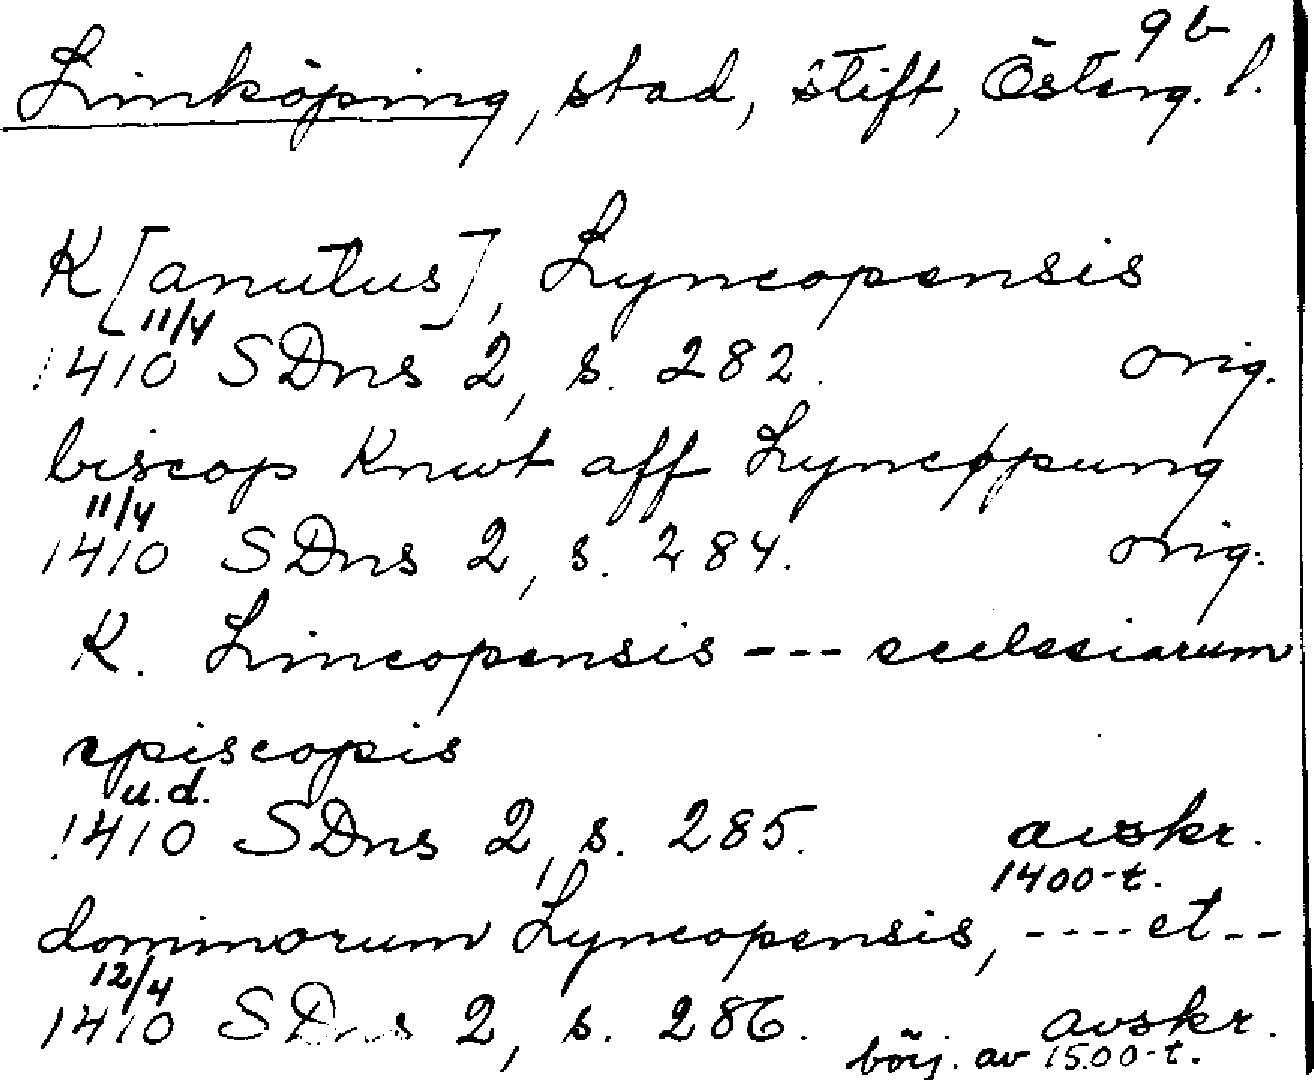 9b
Linköping, stad, stift, Österg. l.
K[anutus], Lyncopensis
11/4
1410 SDns 2, s. 282. orig.
biscop Knwt aff Lyncøpung
11/4
1410 SDns 2, s. 284. orig.
K. Lincopensis --- ecclesiarum
episcopis
u.d.
1410 SDns 2, s. 285. avskr.
1400-t.
dominorum Lyncopensis, ---- et --
12/4
1410 SDns 2, s. 286. avskr.
börj. av 1500-t.